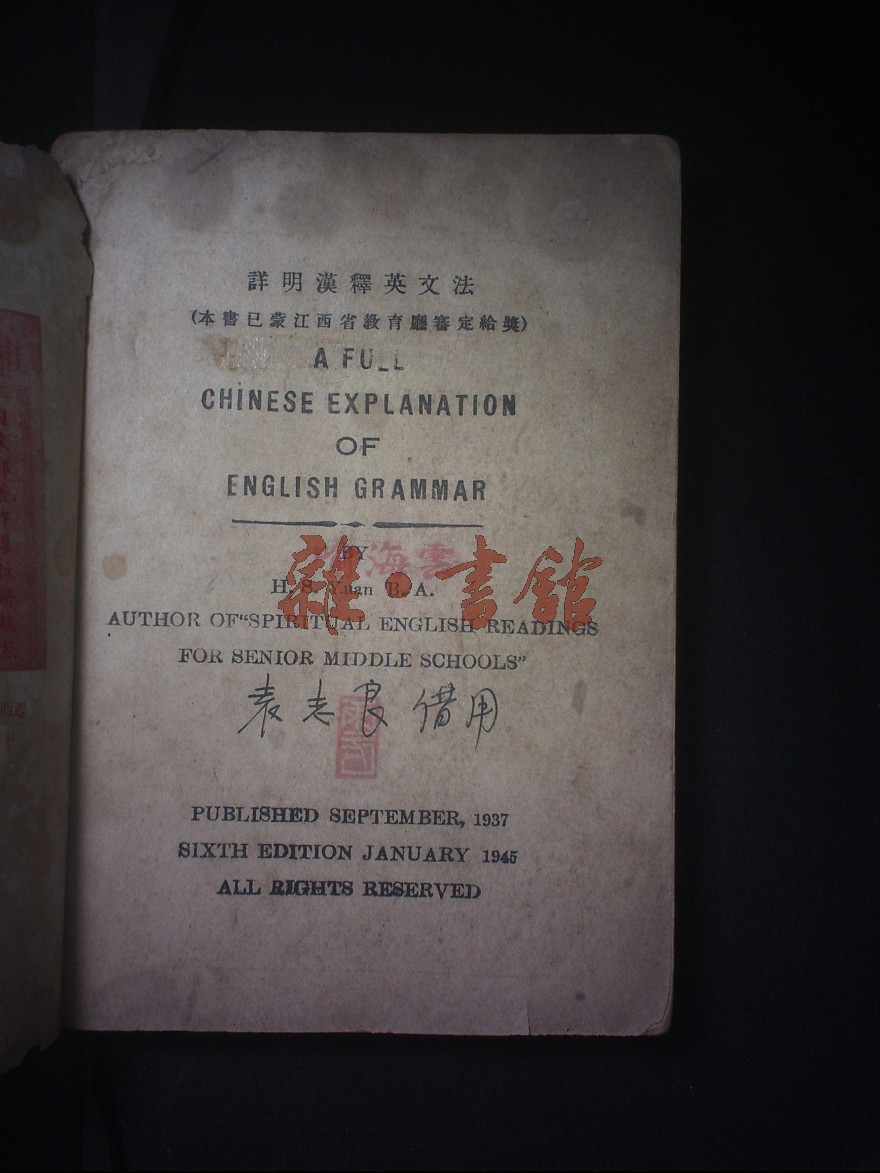 詳明漢釋英文法
(本書已蒙江西省教育廳審定給獎)
A FULL
CHINESE EXPLANATION
OF
ENGLISH GRAMMAR
BY
海雲
雜·書館
H. S. Yuan B. A.
AUTHOR OF "SPIRITUAL ENGLISH READINGS
FOR SENIOR MIDDLE SCHOOLS"
袁志良 借用
PUBLISHED SEPTEMBER, 1937
SIXTH EDITION JANUARY 1945
ALL RIGHTS RESERVED